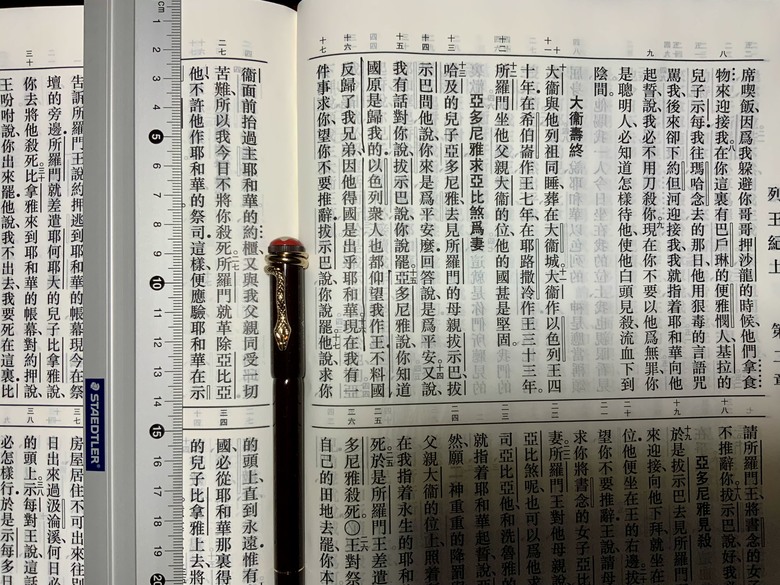 列王紀上 第
席喫飯、因爲我躱避你哥哥押沙龍的時候、他們拿食
物來迎接我。在你這裏有巴戶琳的便雅憫人、基拉的
兒子示每、我往瑪哈念去的那日、他用狠毒的言語咒
罵我、後來卻下約但河迎接我、我就指着耶和華向他
起誓說、我必不用刀殺你。現在你不要以他爲無罪、你
是聰明人、必知道怎樣待他、使他白頭見殺、流血下到
陰間。
大衞壽終
大衞與他列祖同睡、葬在大衞城。大衞作以色列王四
十年、在希伯崙作王七年、在耶路撒冷作王三十三年。
所羅門坐他父親大衞的位、他的國甚是堅固。
亞多尼雅求亞比煞爲妻
哈及的兒子亞多尼雅去見所羅門的母親拔示巴、拔
示巴問他說、你來是爲平安麼、回答說、是爲平安。又說、
我有話對你說、拔示巴說、你說罷。亞多尼雅說、你知道
國原是歸我的、以色列衆人也都仰望我作王、不料國
反歸了我兄弟、因他得國是出乎耶和華。現在我有一
件事求你、望你不要推辭、拔示巴說、你說罷。他說、求你
請所羅門王將書念的女
不推辭你、拔示巴說、好、我
亞多尼雅見殺
於是拔示巴去見所羅門
來迎接、向他下拜、就坐在
位、他便坐在王的右邊。拔
望你不要推辭、王說、請母
求你將書念的女子亞比
妻。所羅門王對他母親說
亞比煞呢、也可以爲他求
司亞比亞他、和洗魯雅的
就指着耶和華起誓說、
然、願 神重重的降罰
父親大衞的位上、照着
在我指着永生的耶和
死。於是所羅門王差遣
多尼雅殺死。○王對祭
自己的田地去罷、你本
衞面前抬過主耶和華的約櫃、又與我父親同受一切
苦難、所以我今日不將你殺死。所羅門就革除亞比亞
他、不許他作耶和華的祭司。這樣、便應驗耶和華在示
告訴所羅門王說、約押逃到耶和華的帳幕、現今在祭
壇的旁邊、所羅門就差遣耶何耶大的兒子比拿雅說、
你去將他殺死。比拿雅來到耶和華的帳幕、對約押說、
王吩咐說、你出來罷、他說、我不出去、我要死在這裏、比
的頭上、直到永遠、惟有
國、必從耶和華那裏得
的兒子比拿雅上去、將
房屋居住、不可出來往別
日出來過汲淪溪、何日必
的頭上。示每對王說、這話
必怎樣行、於是示每多日
cm
1
2
3
4
5
6
7
8
9
10
11
12
13
14
15
16
17
18
19
20
STAEDTLER